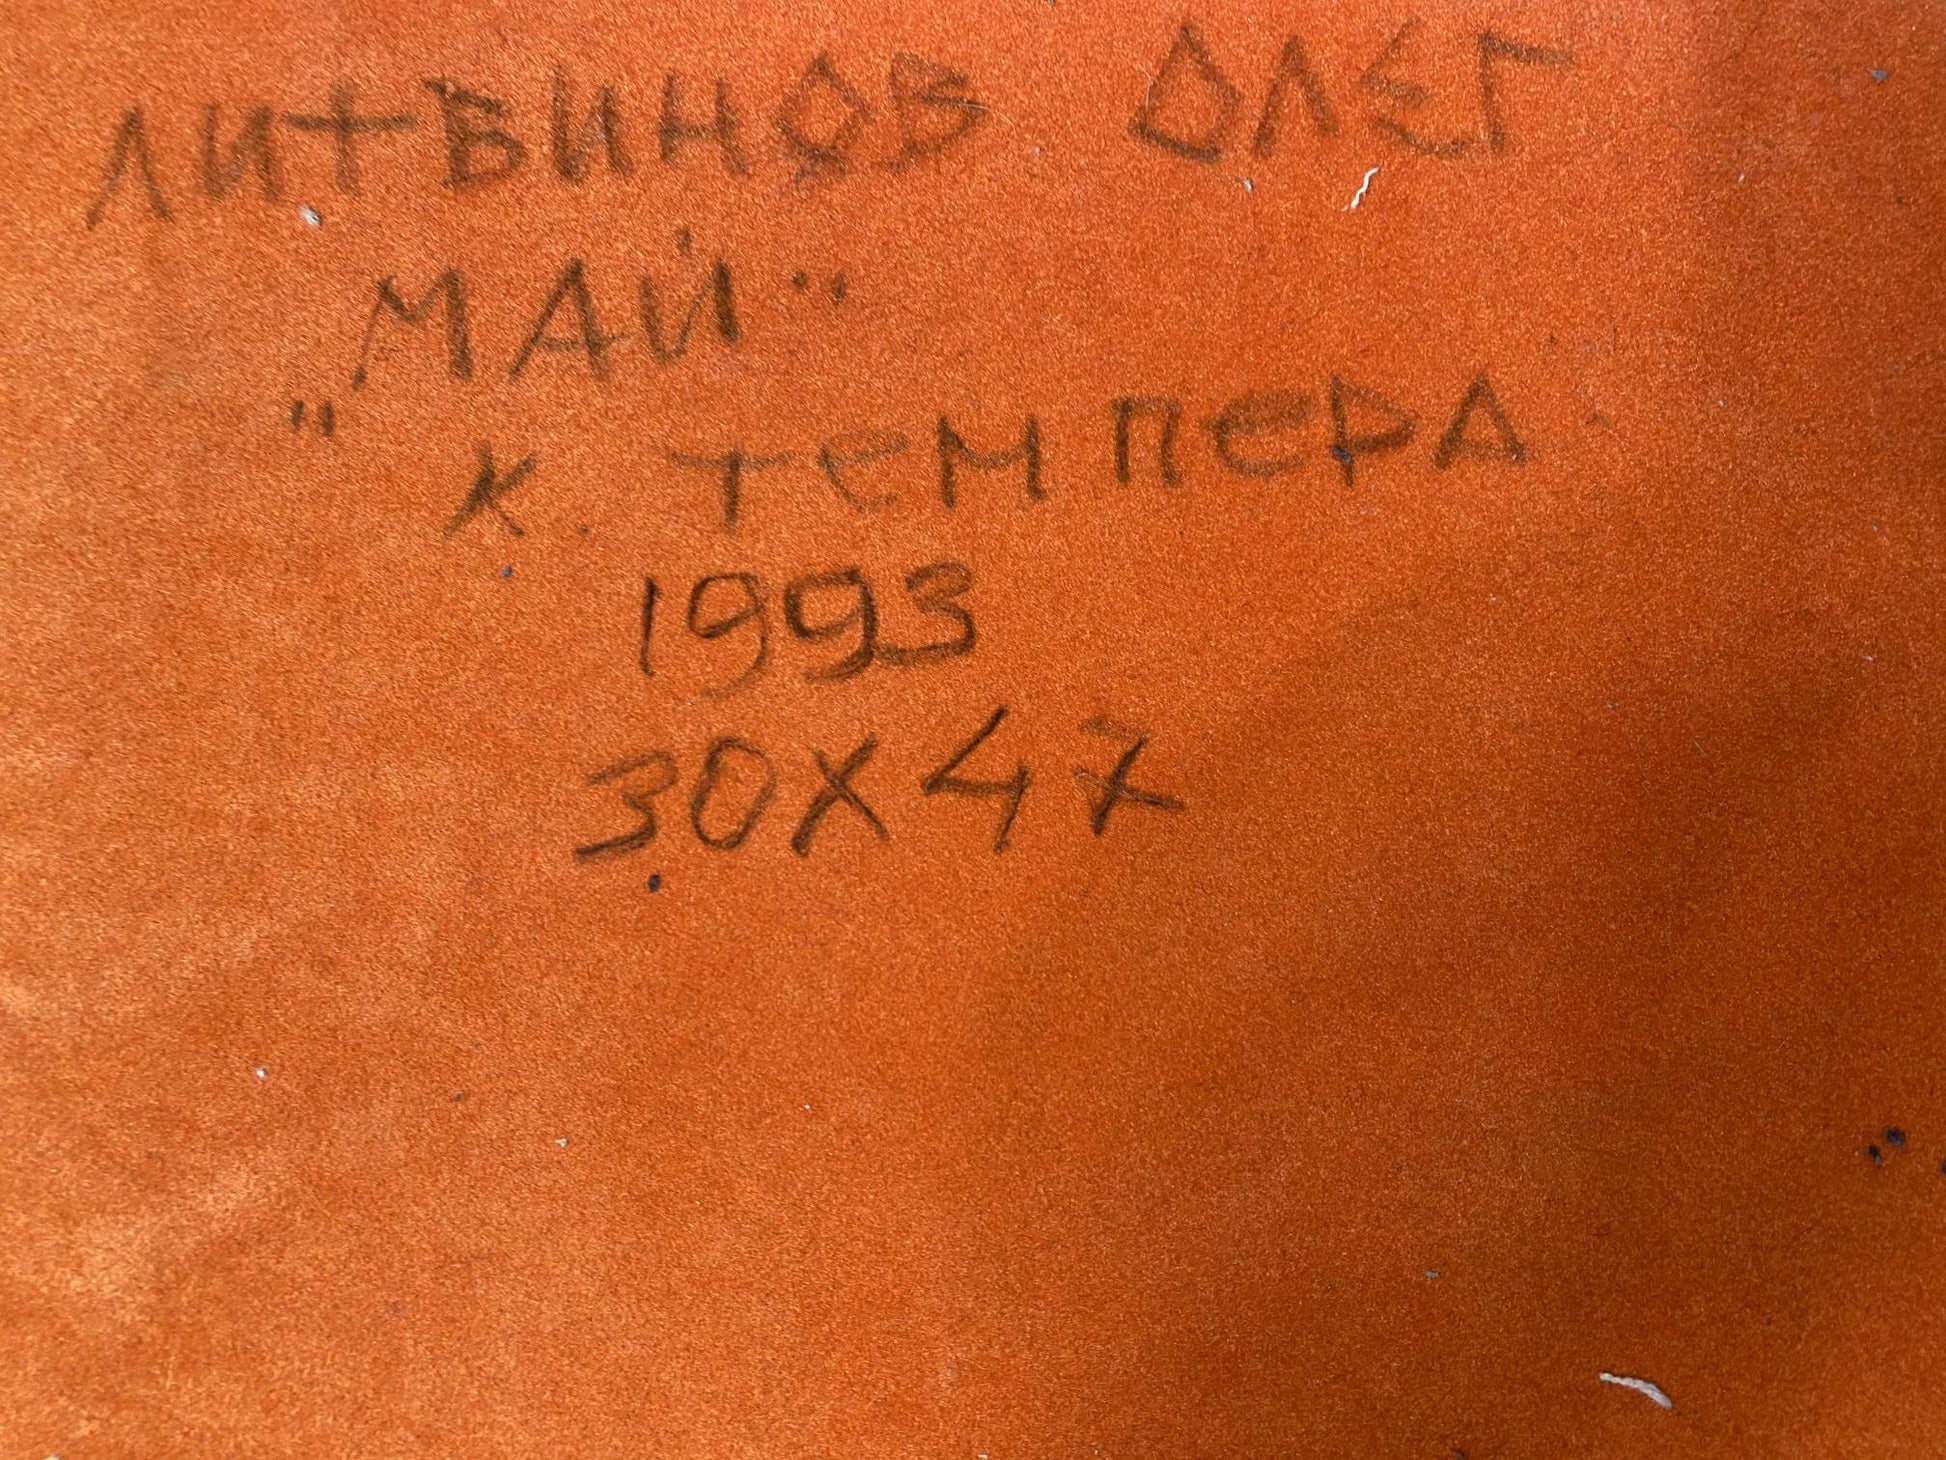 ЛИТВИНОВ ОЛЕГ
„МАЙ“
К. ТЕМПЕРА
1993
30X47